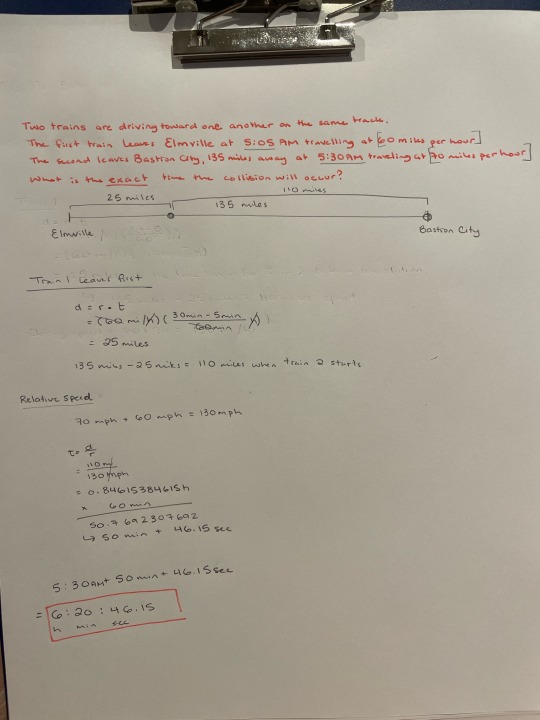 Two trains are driving toward one another on the same track.
The first train leaves Elmville at 5:05 AM travelling at [60 miles per hour]
The second leaves Bastion City, 135 miles away at 5:30AM traveling at [70 miles per hour]
What is the exact time the collision will occur?
25 miles 110 miles
135 miles
Elmville Bastion City
Train 1 leaves first
d = r · t
= (60 mi/h) ( 30min - 5min / 60min h)
= 25 miles
135 miles - 25 miles = 110 miles when train 2 starts
Relative Speed
70 mph + 60 mph = 130mph
t = d/r
= 110mi / 130mph
= 0.84615384615h
x 60 min
50.7692307692
↳ 50 min + 46.15 sec
5:30AM + 50 min + 46.15sec
= 6:20:46.15
h min sec